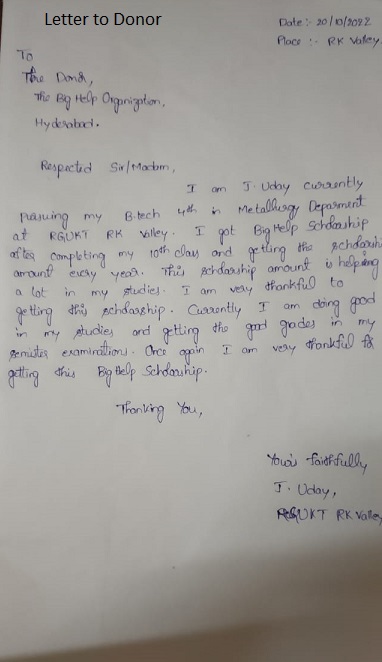 Letter to Donor
Date:- 20/10/2022
Place:- RK Valley.
To
The Donor,
The Big Help Organization,
Hyderabad.
Respected Sir/Madam,
I am J. Uday currently
pursuing my B.tech 4th in Metallurgy Deparment
at RGUKT RK Valley. I got Big Help Scholarship
after completing my 10th class and getting the scholarship
amount every year. This scholarship amount is helping
a lot in my studies. I am very thankful to
getting this scholarship. Currently I am doing good
in my studies and getting the good grades in my
semister examinations. Once again I am very thankful for
getting this Big Help Scholarship.
Thanking You,
Your's faithfully
J. Uday,
RGUKT RK Valley